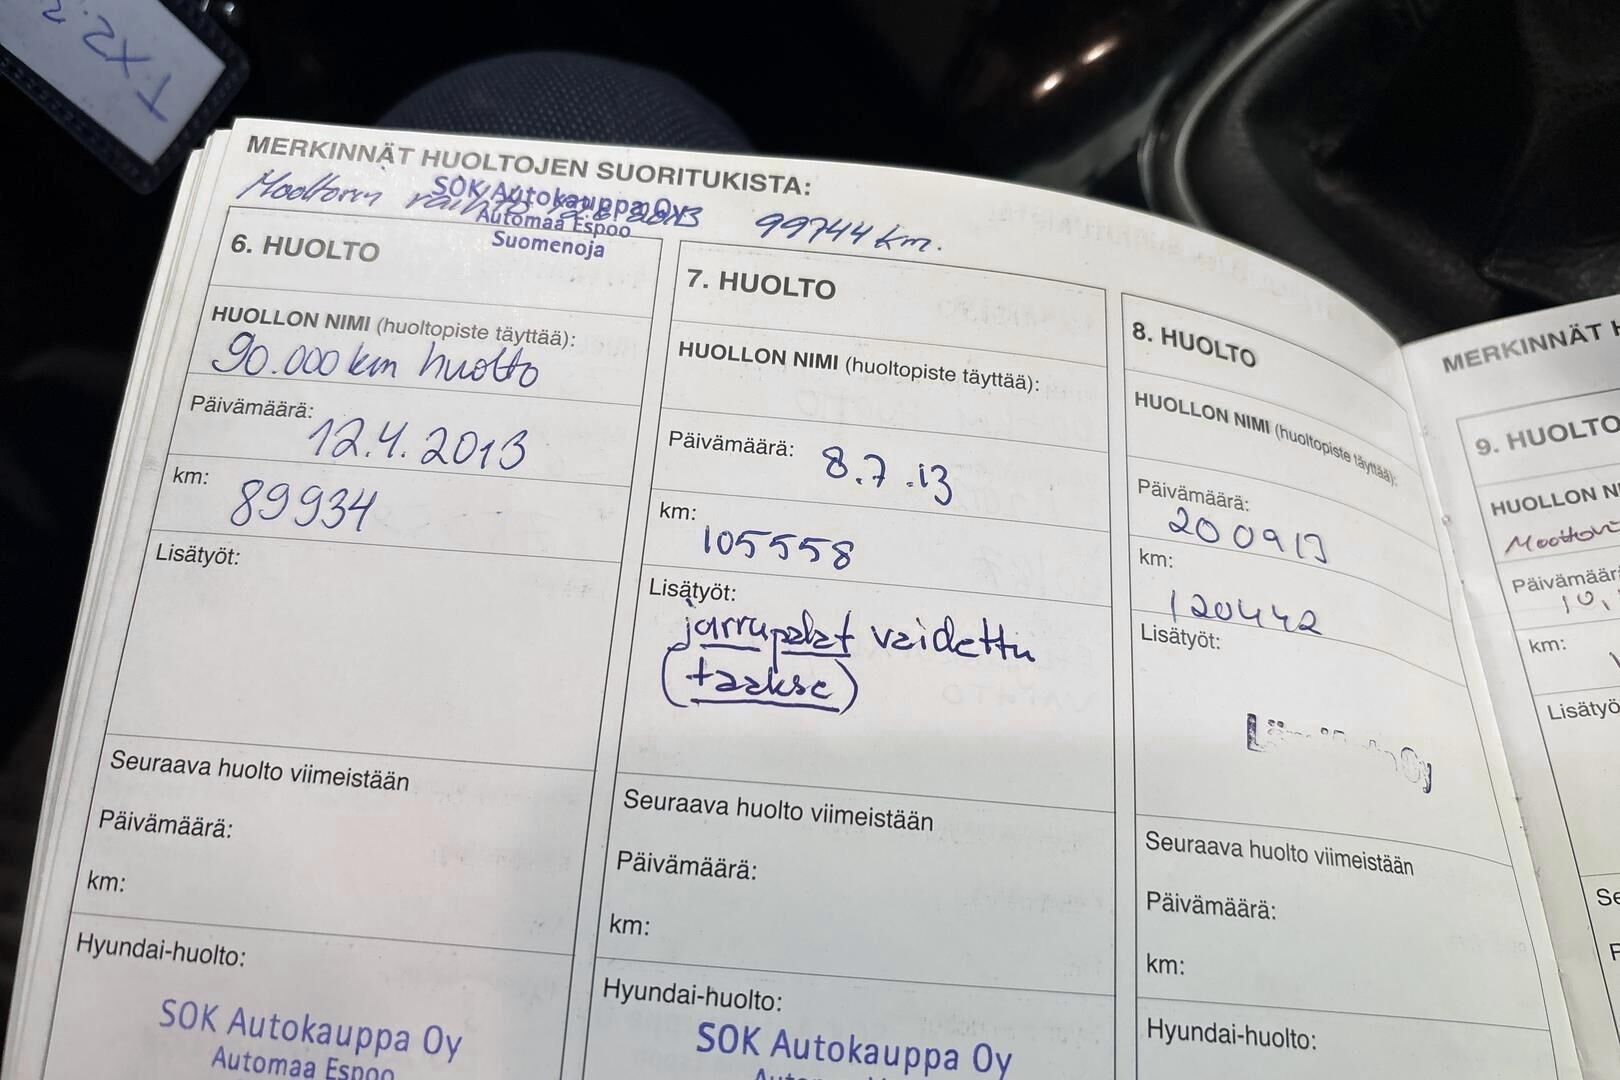 MERKINNÄT HUOLTOJEN SUORITUKISTA:
Moottorin vaihto 2013 99744 km.
SOK Autokauppa Oy
Automaa Espoo
Suomenoja
6. HUOLTO
HUOLLON NIMI (huoltopiste täyttää):
90.000 km huolto
Päivämäärä:
12.4.2013
km:
89934
Lisätyöt:
Seuraava huolto viimeistään
Päivämäärä:
km:
Hyundai-huolto:
SOK Autokauppa Oy
Automaa Espoo
7. HUOLTO
HUOLLON NIMI (huoltopiste täyttää):
Päivämäärä:
8.7.13
km:
105558
Lisätyöt:
jarrupalat vaidettu
(taakse)
Seuraava huolto viimeistään
Päivämäärä:
km:
Hyundai-huolto:
SOK Autokauppa Oy
8. HUOLTO
HUOLLON NIMI (huoltopiste täyttää):
Päivämäärä:
200913
km:
120442
Lisätyöt:
Oy
Seuraava huolto viimeistään
Päivämäärä:
km:
Hyundai-huolto:
MERKINNÄT
9. HUOLTO
HUOLLON
Päivämäär
10.
km:
Lisätyö